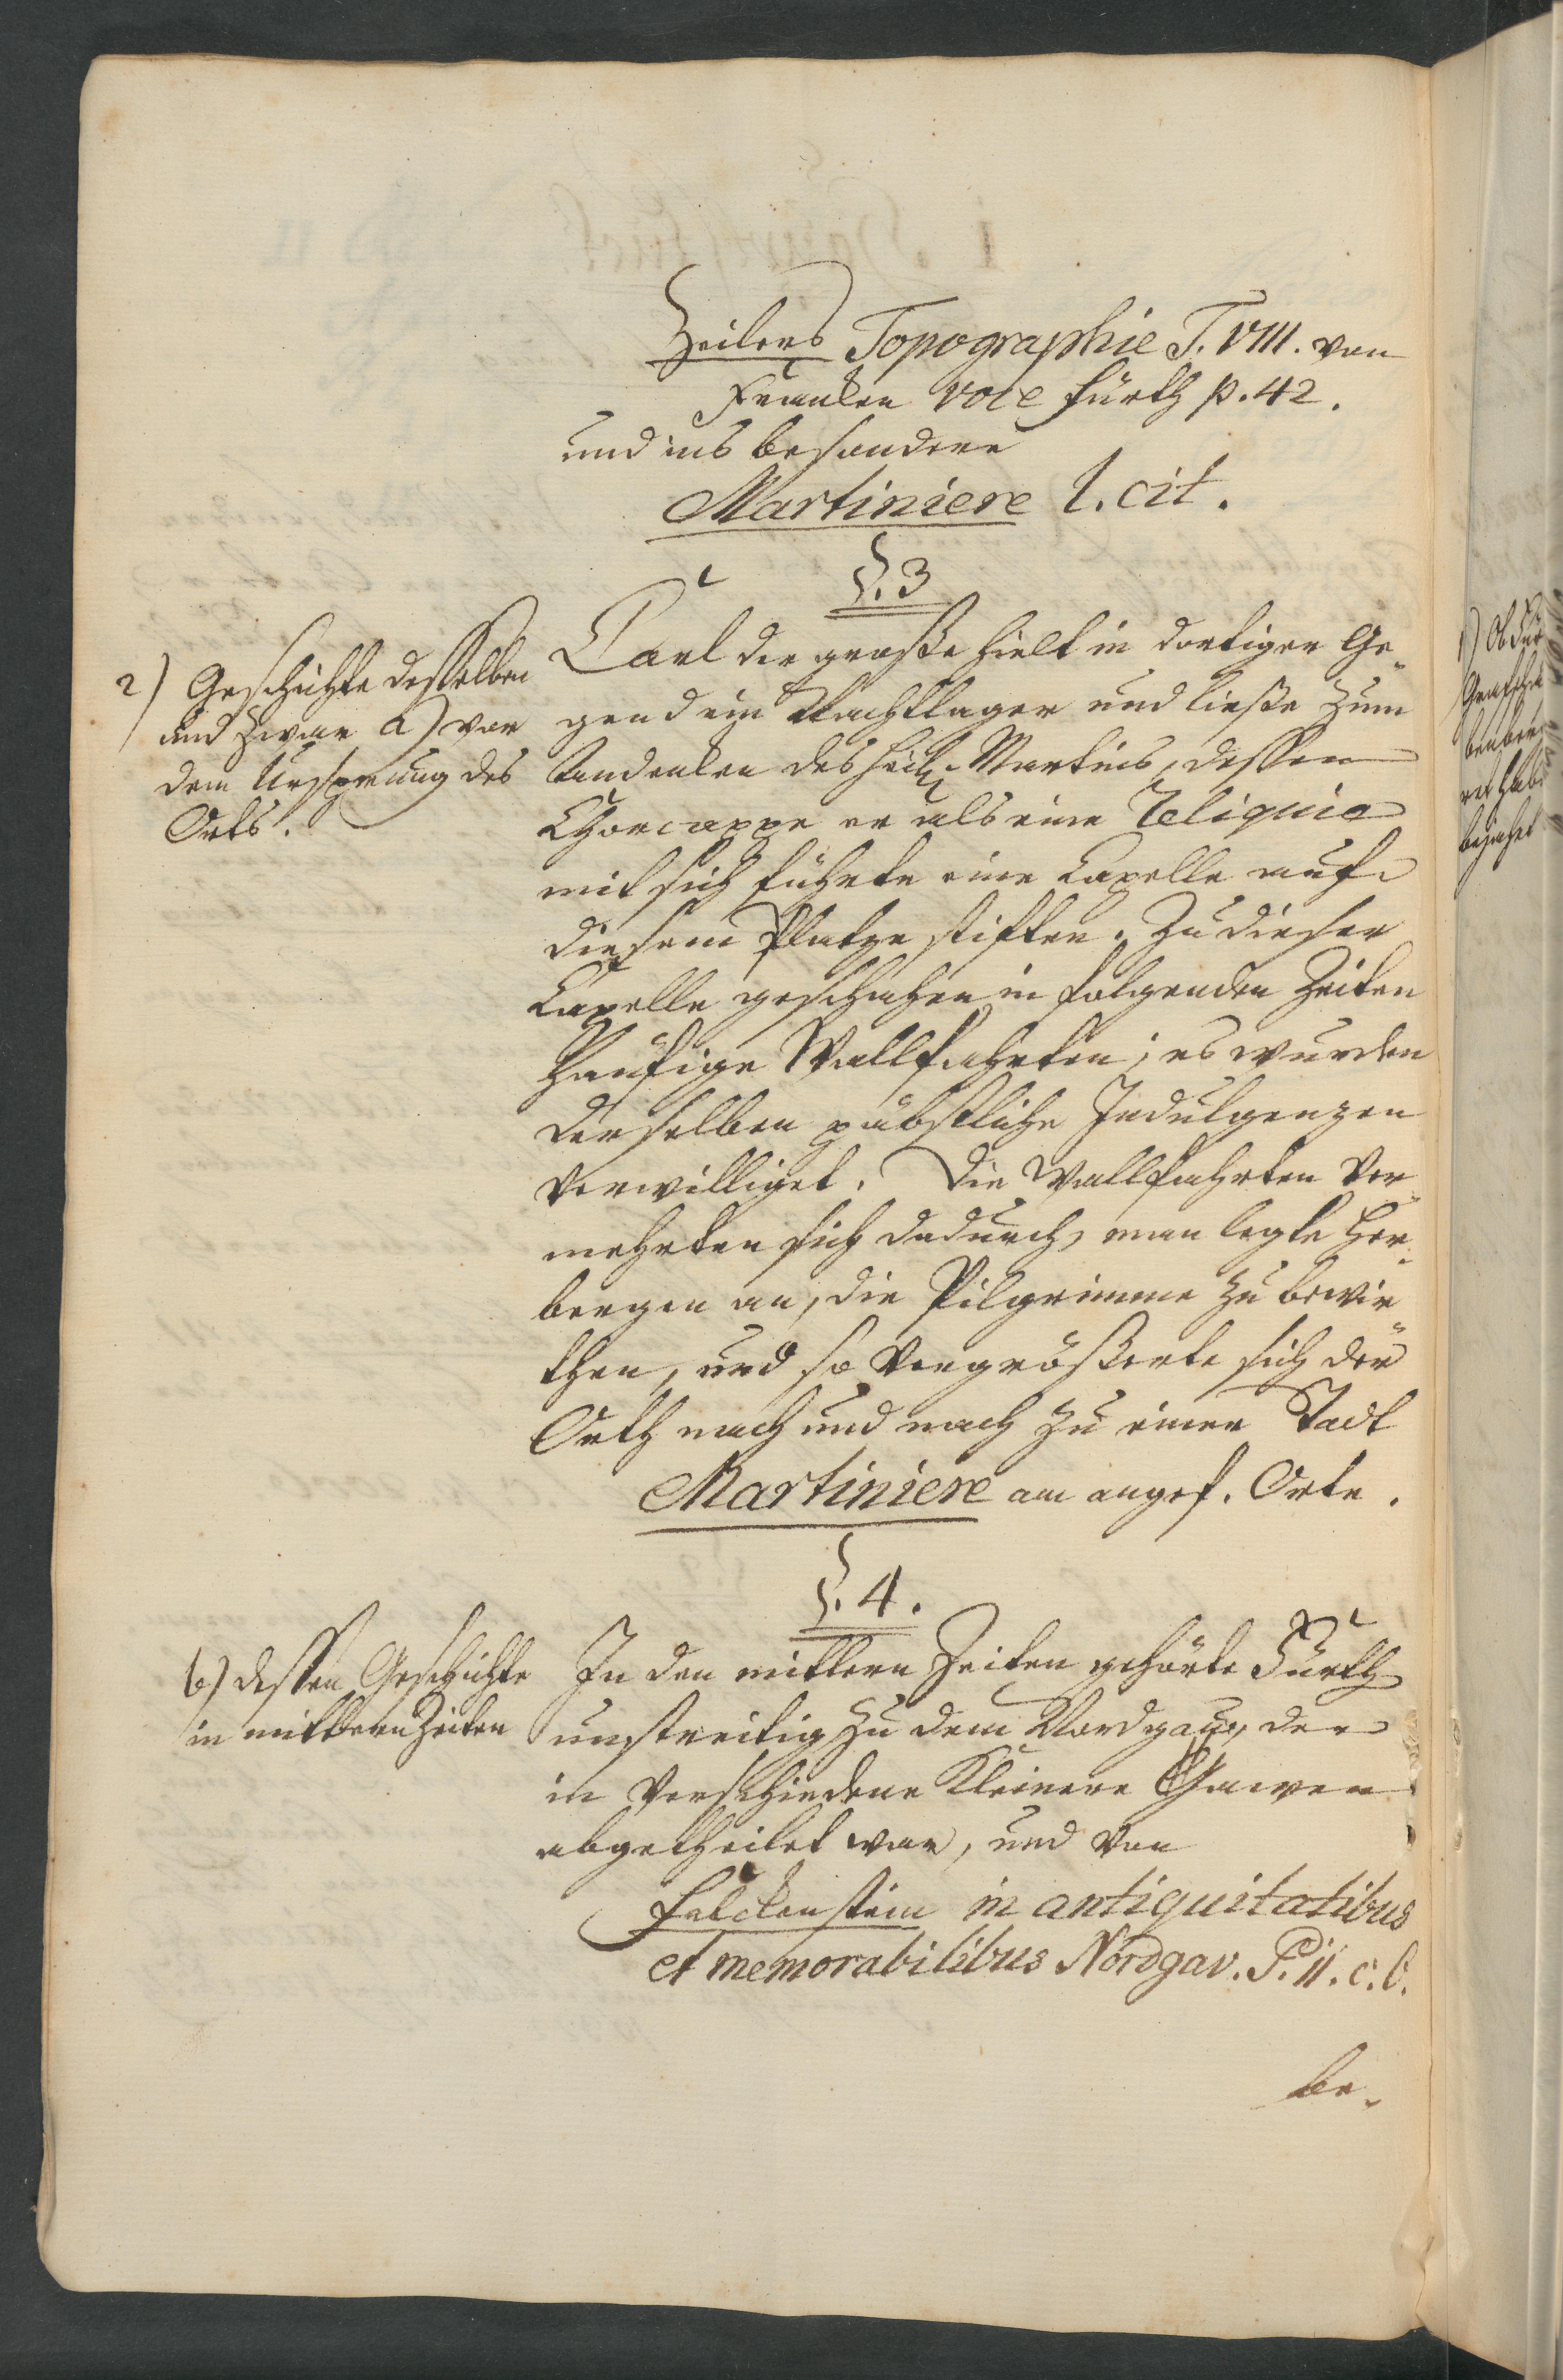 Zeilers Topographie T. VIII. von
Franken voce Fürth p. 42.
und ins besondere
Martiniere l. cit.
§. 3
2) Geschichte desselben
und zwar a) von
dem Ursprung des
Orts.
Carl der große hielt in dortiger Ge-
gend ein Nachtlager und ließe zum
Andenken des heil. Martins, dessen
Chorcappe er als eine Reliquie
mit sich führte eine Capelle auf
diesem Platze stiften. Zu dieser
Capelle geschahen in folgenden Zeiten
häufige Wallfahrten; es wurden
derselben päbstliche Indulgenzen
verwilliget. Die Wallfahrten ver-
mehrten sich dadurch, man legte Her-
bergen an, die Pilgrimme zu bewir-
then, und so vergrößerte sich der
Orth nach und nach zu einer Stadt
Martiniere am angef. Orte.
§. 4.
b) dessen Geschichte
in mittlern Zeiten
In den mittlern Zeiten gehörte Fürth
unstreitig zu dem Nordgau, der
in verschiedene kleinere Gauen
abgetheilet war, und von
Falckenstein in antiquitatibus
et memorabilibus Nordgav. P. II. c. 6.
be-